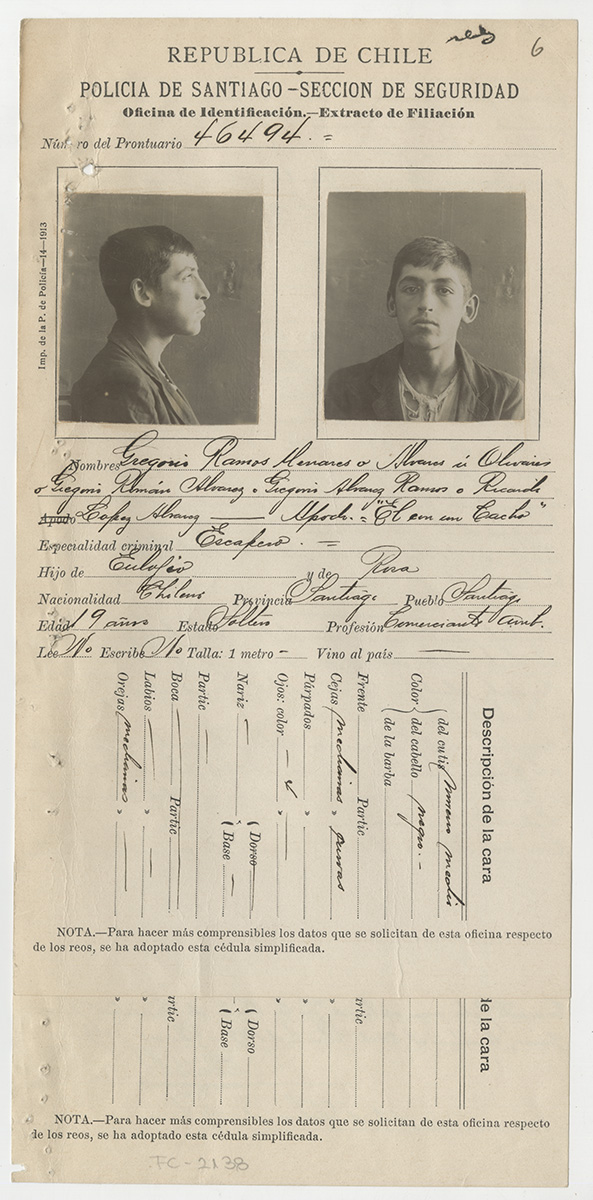 6
REPUBLICA DE CHILE
POLICIA DE SANTIAGO-SECCION DE SEGURIDAD
Oficina de Identificación.—Extracto de Filiación
Número del Prontuario 46494.=
Imp. de la P. de Policía—14—1913
Nombres Gregorio Ramos Menares o Alvares ú Olivares
o Gregorio Román Alvarez o Gregorio Alvarez Ramos o Ricardo
Apodo Lopez Alvarez — Apodo = "El con un Cacho"
Especialidad criminal Escapero.=
Hijo de Eulojio y de Rosa
Nacionalidad Chileno Provincia Santiago Pueblo Santiago
Edad 19 años Estado Soltero Profesión Comerciante amb.
Lee No Escribe No Talla: 1 metro - Vino al país —
Descripción de la cara
Color del cutis moreno medio
del cabello negro.-
de la barba
Frente Partic
Cejas medianas » gruesas
Párpados »
Ojos: color »
Nariz » Dorso
Base
Partic
Boca Partic
Labios »
Orejas medianas »
NOTA.—Para hacer más comprensibles los datos que se solicitan de esta oficina respecto
de los reos, se ha adoptado esta cédula simplificada.
de la cara
Partic
»
»
» Dorso
Base
Partic
»
»
NOTA.—Para hacer más comprensibles los datos que se solicitan de esta oficina respecto
de los reos, se ha adoptado esta cédula simplificada.
FC-2138